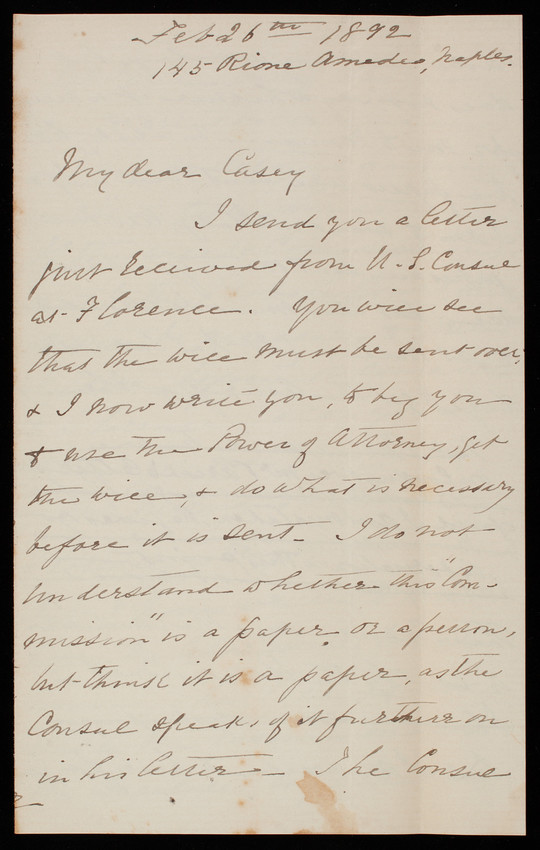 Feb 26th 1892
145 Rione Amedeo, Naples.
My dear Casey
I send you a letter
just received from U.S. Consul
at Florence. You will see
that the will must be sent over,
& I now write you, to beg you
to use the Power of Attorney, get
the will, & do what is necessary
before it is sent - I do not
understand whether this "Com-
mission" is a paper or a person,
but think it is a paper, as the
Consul speaks of it further on
in his letter - The Consul